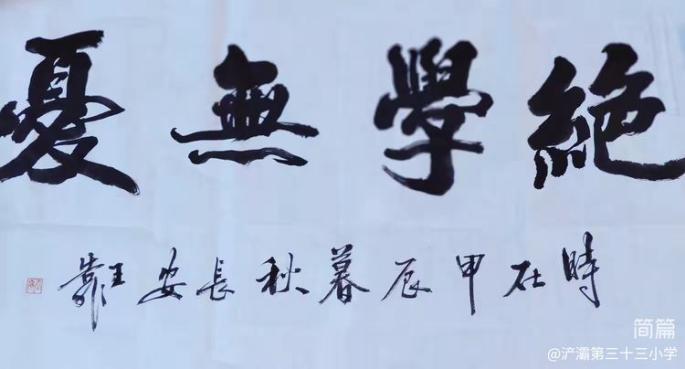 絶學無憂
時在甲辰暮秋長安王靠
简篇
@浐灞第三十三小学